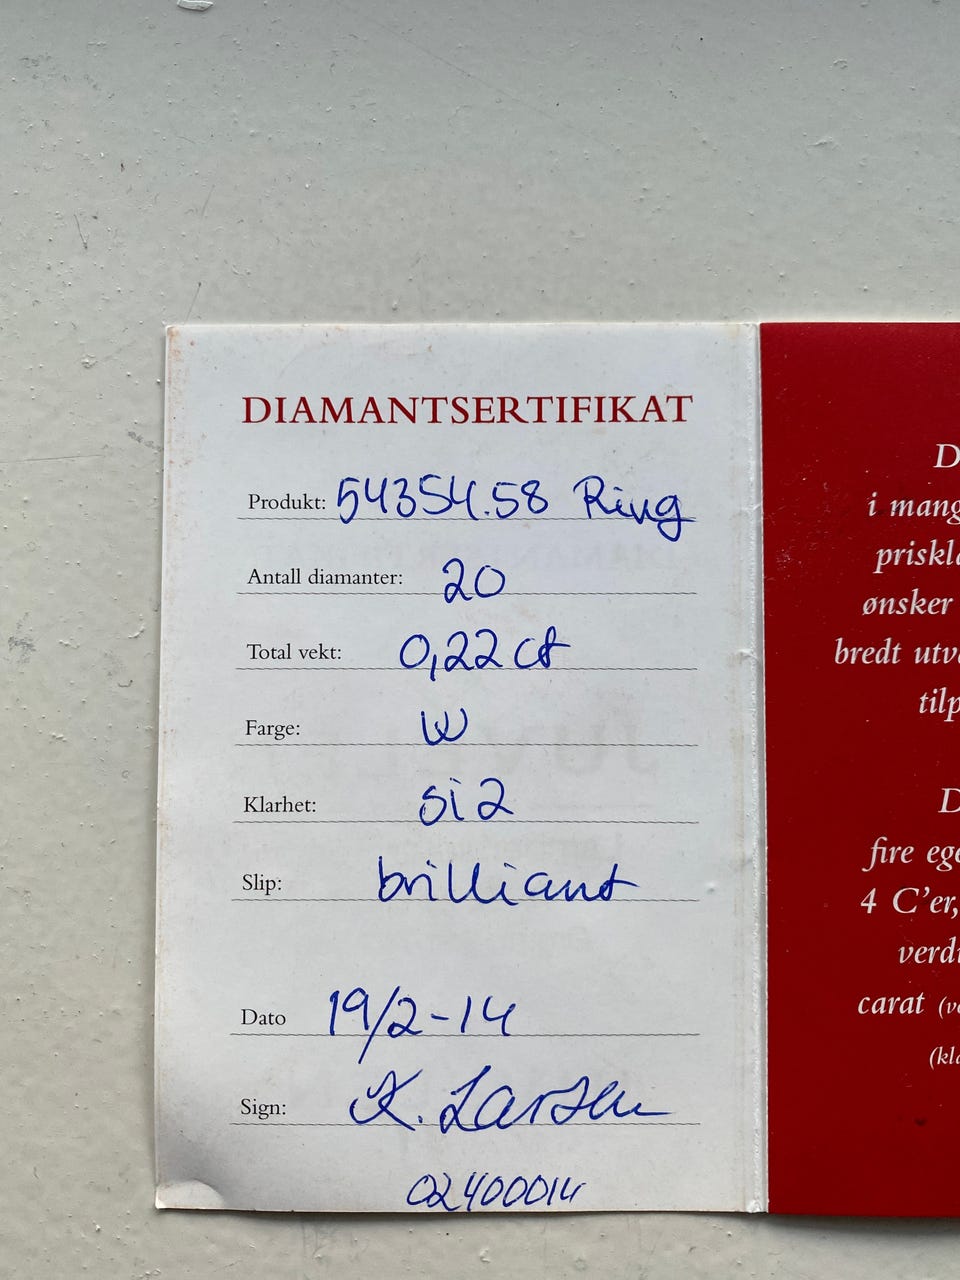 DIAMANTSERTIFIKAT
Produkt: 54354.58 Ring
Antall diamanter: 20
Total vekt: 0,22 ct
Farge: W
Klarhet: si2
Slip: brilliant
Dato 19/2-14
Sign: K. Larsen
02400014
D
i mang
priskla
ønsker
bredt utva
tilp
D
fire ege
4 C'er,
verdi
carat (ve
(kla